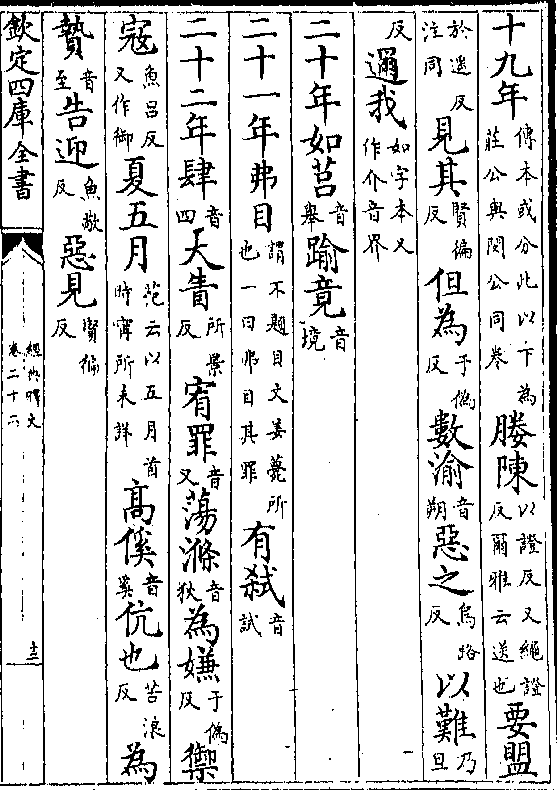 十九年傳本或分此以下為莊公與閔公同卷媵陳以證反又繩證反爾雅云送也要盟
於遥反注同見其賢徧反但為于偽反數渝音朔惡之烏路反以難乃旦
反邇我如字本又作介音界
二十年如莒音舉踰竟音境
二十一年弗目謂不題目文姜薨所也一曰弗目其罪有弑音試
二十二年肆音四大眚所景反宥罪音又蕩滌音狄為嫌于偽反禦
寇魚吕反又作御夏五月范云以五月首時甯所未詳高傒音奚伉也苦浪反為
贄音至告迎魚敬反惡見賢徧反
欽定四庫全書
經典釋文
卷二十二
十三